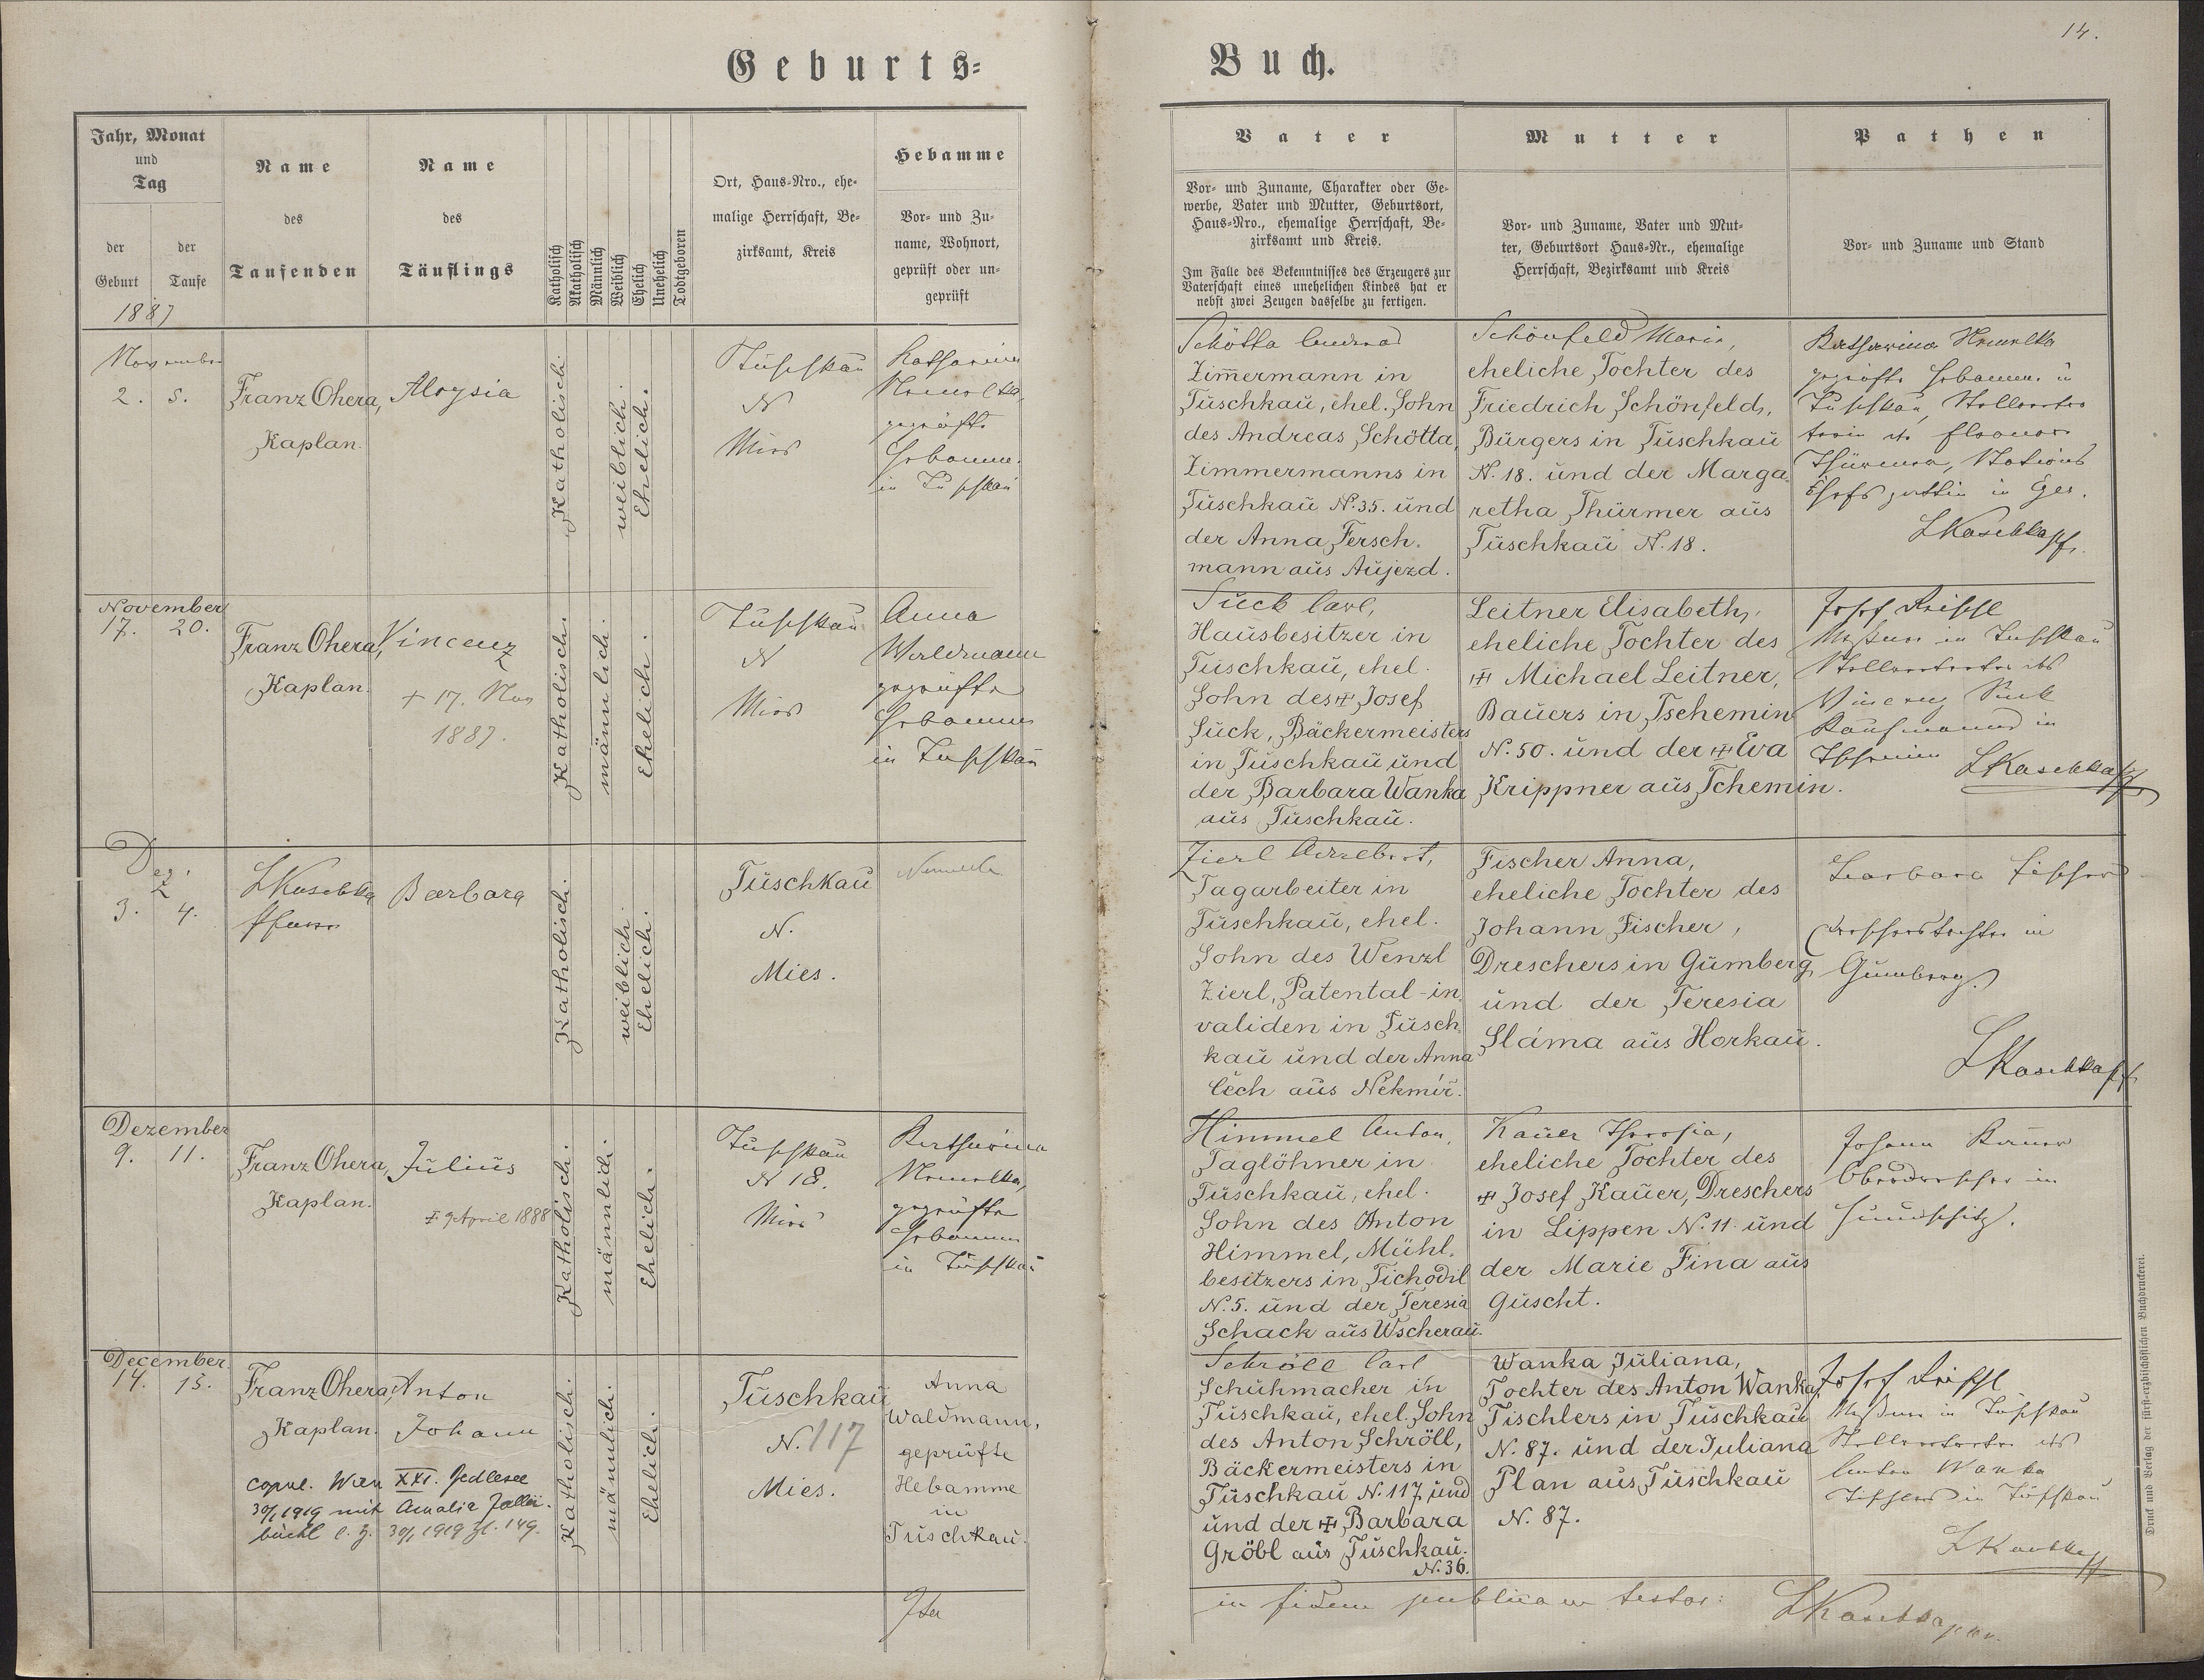 14.
Geburts-
Buch.
Jahr, Monat
und
Tag
der
Geburt
der
Taufe
1887
Name
des
Taufenden
Name
des
Täuflings
Katholisch
Akatholisch
Männlich
Weiblich
Ehelich
Unehelich
Todtgeboren
Ort, Haus-Nro., ehe-
malige Herrschaft, Be-
zirksamt, Kreis
Hebamme
Vor- und Zu-
name, Wohnort,
geprüft oder un-
geprüft
Vater
Vor- und Zuname, Charakter oder Ge-
werbe, Vater und Mutter, Geburtsort,
Haus-Nro., ehemalige Herrschaft, Be-
zirksamt und Kreis.
Im Falle des Bekenntnisses des Erzeugers zur
Vaterschaft eines unehelichen Kindes hat er
nebst zwei Zeugen dasselbe zu fertigen.
Mutter
Vor- und Zuname, Vater und Mut-
ter, Geburtsort Haus-Nr., ehemalige
Herrschaft, Bezirksamt und Kreis
Pathen
Vor- und Zuname und Stand
November
2. 5.
Franz Ohera,
Kaplan.
Aloysia
Katholisch.
weiblich.
Ehelich.
Tuschkau
N
Mies
Katharina
geprüfte
Hebamme
in Tuschkau
Schötta Conrad
Zimmermann in
Tuschkau, ehel. Sohn
des Andreas Schötta,
Zimmermanns in
Tuschkau N. 35. und
der Anna Fersch-
mann aus Aujezd.
Schönfeld Marie,
eheliche Tochter des
Friedrich Schönfeld,
Bürgers in Tuschkau
N. 18. und der Marga-
retha Thürmer aus
Tuschkau N. 18.
Katharina
geprüfte Hebamme in
Tuschkau, Stellvertre-
terin der Eleonora
Thürmer, Stations
Chefs gattin in Eger.
LKaschka Pf.
November
17. 20.
Franz Ohera,
Kaplan.
Vincenz
+ 17. Nov
1887.
Katholisch.
männlich.
Ehelich.
Tuschkau
N
Mies
Anna
Waldmann
geprüfte
Hebamme
in Tuschkau
Suck Carl,
Hausbesitzer in
Tuschkau, ehel.
Sohn des + Josef
Suck, Bäckermeisters
in Tuschkau und
der Barbara Wanka
aus Tuschkau.
Leitner Elisabeth,
eheliche Tochter des
+ Michael Leitner,
Bauers in Tschemin
N. 50. und der + Eva
Krippner aus Tschemin.
Josef
Meßner in Tuschkau
Stellvertreter des
Vincenz Suck
Kaufmanns in
Tschemin LKaschka Pf
Dez.
3. 4.
LKaschka
Pfarrer
Barbara
Katholisch.
weiblich.
Ehelich.
Tuschkau
N.
Mies.
Zierl Adalbert,
Tagarbeiter in
Tuschkau, ehel.
Sohn des Wenzl
Zierl, Patental-in-
validen in Tusch-
kau und der Anna
Čech aus Nekmíř.
Fischer Anna,
eheliche Tochter des
Johann Fischer,
Dreschers in Gumberg
und der Teresia
Sláma aus Horkau.
Barbara Fischer
Drescherstochter in
Gumberg
LKaschka Pf
Dezember
9. 11.
Franz Ohera,
Kaplan.
Julius
+ 9 April 1888
Katholisch.
männlich.
Ehelich.
Tuschkau
N 18.
Mies
Katharina
geprüfte
Hebamme
in Tuschkau
Himmel Anton,
Taglöhner in
Tuschkau, ehel.
Sohn des Anton
Himmel, Mühl-
besitzers in Tichodil
N. 5. und der Teresia
Schack aus Wscherau.
Kauer Theresia,
eheliche Tochter des
+ Josef Kauer, Dreschers
in Lippen N. 11 und
der Marie Fina aus
Guscht.
Johann Kauer
Oberdrescher in
December
14. 15.
Franz Ohera,
Kaplan.
Anton
Johann
copul. Wien XXI. Jedlesee
30/1 1919 mit Amalia
30/1 1919 Zl. 149.
Katholisch.
männlich.
Ehelich.
Tuschkau
N. 117
Mies.
Anna
Waldmann,
geprüfte
Hebamme
in
Tuschkau.
Schröll Carl
Schuhmacher in
Tuschkau, ehel. Sohn
des Anton Schröll,
Bäckermeisters in
Tuschkau N. 117 und
und der + Barbara
Gröbl aus Tuschkau.
N. 36.
Wanka Juliana,
Tochter des Anton Wanka,
Tischlers in Tuschkau
N. 87. und der Juliana
Plan aus Tuschkau
N. 87.
Josef
Meßner in Tuschkau
Stellvertreter des
Anton Wanka
Tischlers in Tuschkau
LKaschka Pf
in fidem publicam testor: LKaschka
Druck und Verlag der fürst-erzbischöflichen Buchdruckerei.